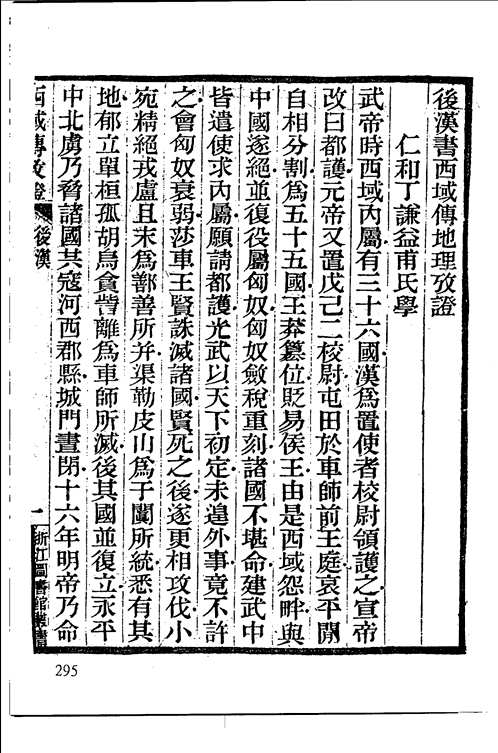 後漢書西域傳地理攷證
仁和丁謙益甫氏學
武帝時西域內屬有三十六國漢爲置使者校尉領護之宣帝
改曰都護元帝又置戊己二校尉屯田於車師前王庭哀平閒
自相分割爲五十五國王莽篡位貶易侯王由是西域怨畔與
中國遂絕並復役屬匈奴匈奴斂稅重刻諸國不堪命建武中
皆遣使求內屬願請都護光武以天下初定未遑外事竟不許
之會匈奴衰弱莎車王賢誅滅諸國賢死之後遂更相攻伐小
宛精絕戎盧且末爲鄯善所并渠勒皮山爲于闐所統悉有其
地郁立單桓孤胡烏貪訾離爲車師所滅後其國並復立永平
中北虜乃脅諸國共寇河西郡縣城門晝閉十六年明帝乃命
西域傳攷證 後漢
一
浙江圖書館叢書
295